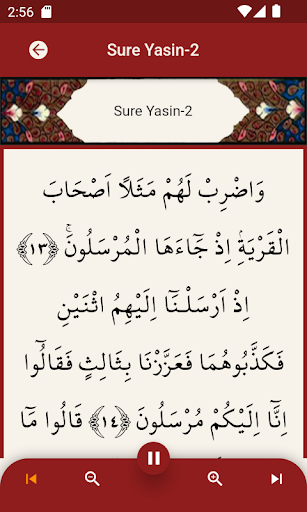 2:56
Sure Yasin-2
Sure Yasin-2
وَاضْرِبْ لَهُمْ مَثَلًا اَصْحَابَ
الْقَرْيَةِۢ اِذْ جَٓاءَهَا الْمُرْسَلُونَۚ ﴿١٣﴾
اِذْ اَرْسَلْنَٓا اِلَيْهِمُ اثْنَيْنِ
فَكَذَّبُوهُمَا فَعَزَّزْنَا بِثَالِثٍ فَقَالُٓوا
اِنَّٓا اِلَيْكُمْ مُرْسَلُونَ ﴿١٤﴾ قَالُوا مَٓا